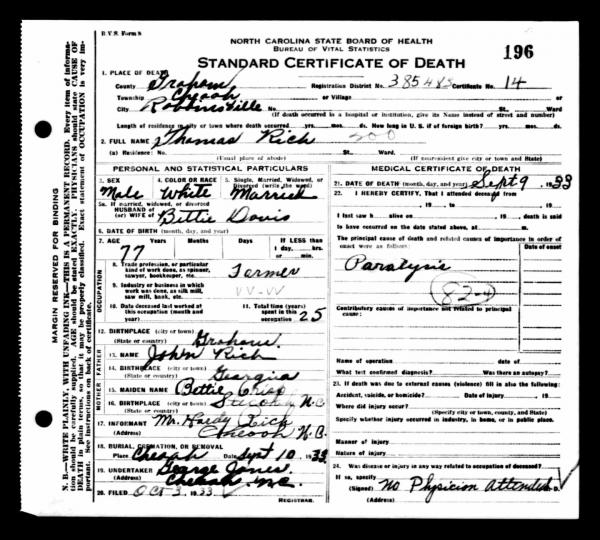 B.V.S. Form 8
NORTH CAROLINA STATE BOARD OF HEALTH
BUREAU OF VITAL STATISTICS
STANDARD CERTIFICATE OF DEATH
196
1. PLACE OF DEATH
County Graham Registration District No. 385483 Certificate No. 14
Township Cheoah or Village or
City Robbinsville No. St. Ward
(If death occurred in a hospital or institution, give its Name instead of street and number)
Length of residence in city or town where death occurred yrs. mos. ds. How long in U. S. if of foreign birth? yrs. mos. ds.
2. FULL NAME Thomas Rich 200
(a) Residence: No. St. Ward.
(Usual place of abode) (If nonresident give city or town and State)
PERSONAL AND STATISTICAL PARTICULARS
3. SEX Male
4. COLOR OR RACE White
5. Single, Married, Widowed, or Divorced (write the word) Married
5a. If married, widowed, or divorced
HUSBAND of
(or) WIFE of Bittie Davis
6. DATE OF BIRTH (month, day, and year)
7. AGE 77 Years Months Days If LESS than
1 day, hrs.
or min.
OCCUPATION
8. Trade, profession, or particular
kind of work done, as spinner,
sawyer, bookkeeper, etc. Farmer
9. Industry or business in which
work was done, as silk mill,
saw mill, bank, etc. VV-VV
10. Date deceased last worked at
this occupation (month and
year)
11. Total time (years)
spent in this
occupation 25
12. BIRTHPLACE (city or town) Graham
(State or country)
FATHER
13. NAME John Rich
14. BIRTHPLACE (city or town) Georgia
(State or country)
MOTHER
15. MAIDEN NAME Bettie Crisp
16. BIRTHPLACE (city or town) N.C.
(State or country)
17. INFORMANT Mr. Hardy Rich
(Address) Cheoah N.C.
18. BURIAL, CREMATION, OR REMOVAL
Place Cheoah Date Sept 10, 1933
19. UNDERTAKER George Jones
(Address) Cheoah, N.C.
20. FILED Oct 3, 1933
REGISTRAR.
MEDICAL CERTIFICATE OF DEATH
21. DATE OF DEATH (month, day, and year) Sept 9, 1933
22. I HEREBY CERTIFY, That I attended deceased from
, 19 , to , 19
I last saw h alive on , 19 , death is said
to have occurred on the date stated above, at m.
The principal cause of death and related causes of importance in order of
onset were as follows: Date of onset
Paralysis
Contributory causes of importance not related to principal
cause:
Name of operation Date of
What test confirmed diagnosis? Was there an autopsy?
23. If death was due to external causes (violence) fill in also the following:
Accident, suicide, or homicide? Date of injury , 19
Where did injury occur?
(Specify city or town, county, and State)
Specify whether injury occurred in industry, in home, or in public place.
Manner of injury
Nature of injury
24. Was disease or injury in any way related to occupation of deceased?
If so, specify
(Signed) No Physician Attended
MARGIN RESERVED FOR BINDING
N. B.—WRITE PLAINLY, WITH UNFADING INK—THIS IS A PERMANENT RECORD. Every item of information should be carefully supplied. AGE should be stated EXACTLY. PHYSICIANS should state CAUSE OF DEATH in plain terms, so that it may be properly classified. Exact statement of OCCUPATION is very important. See instructions on back of certificate.